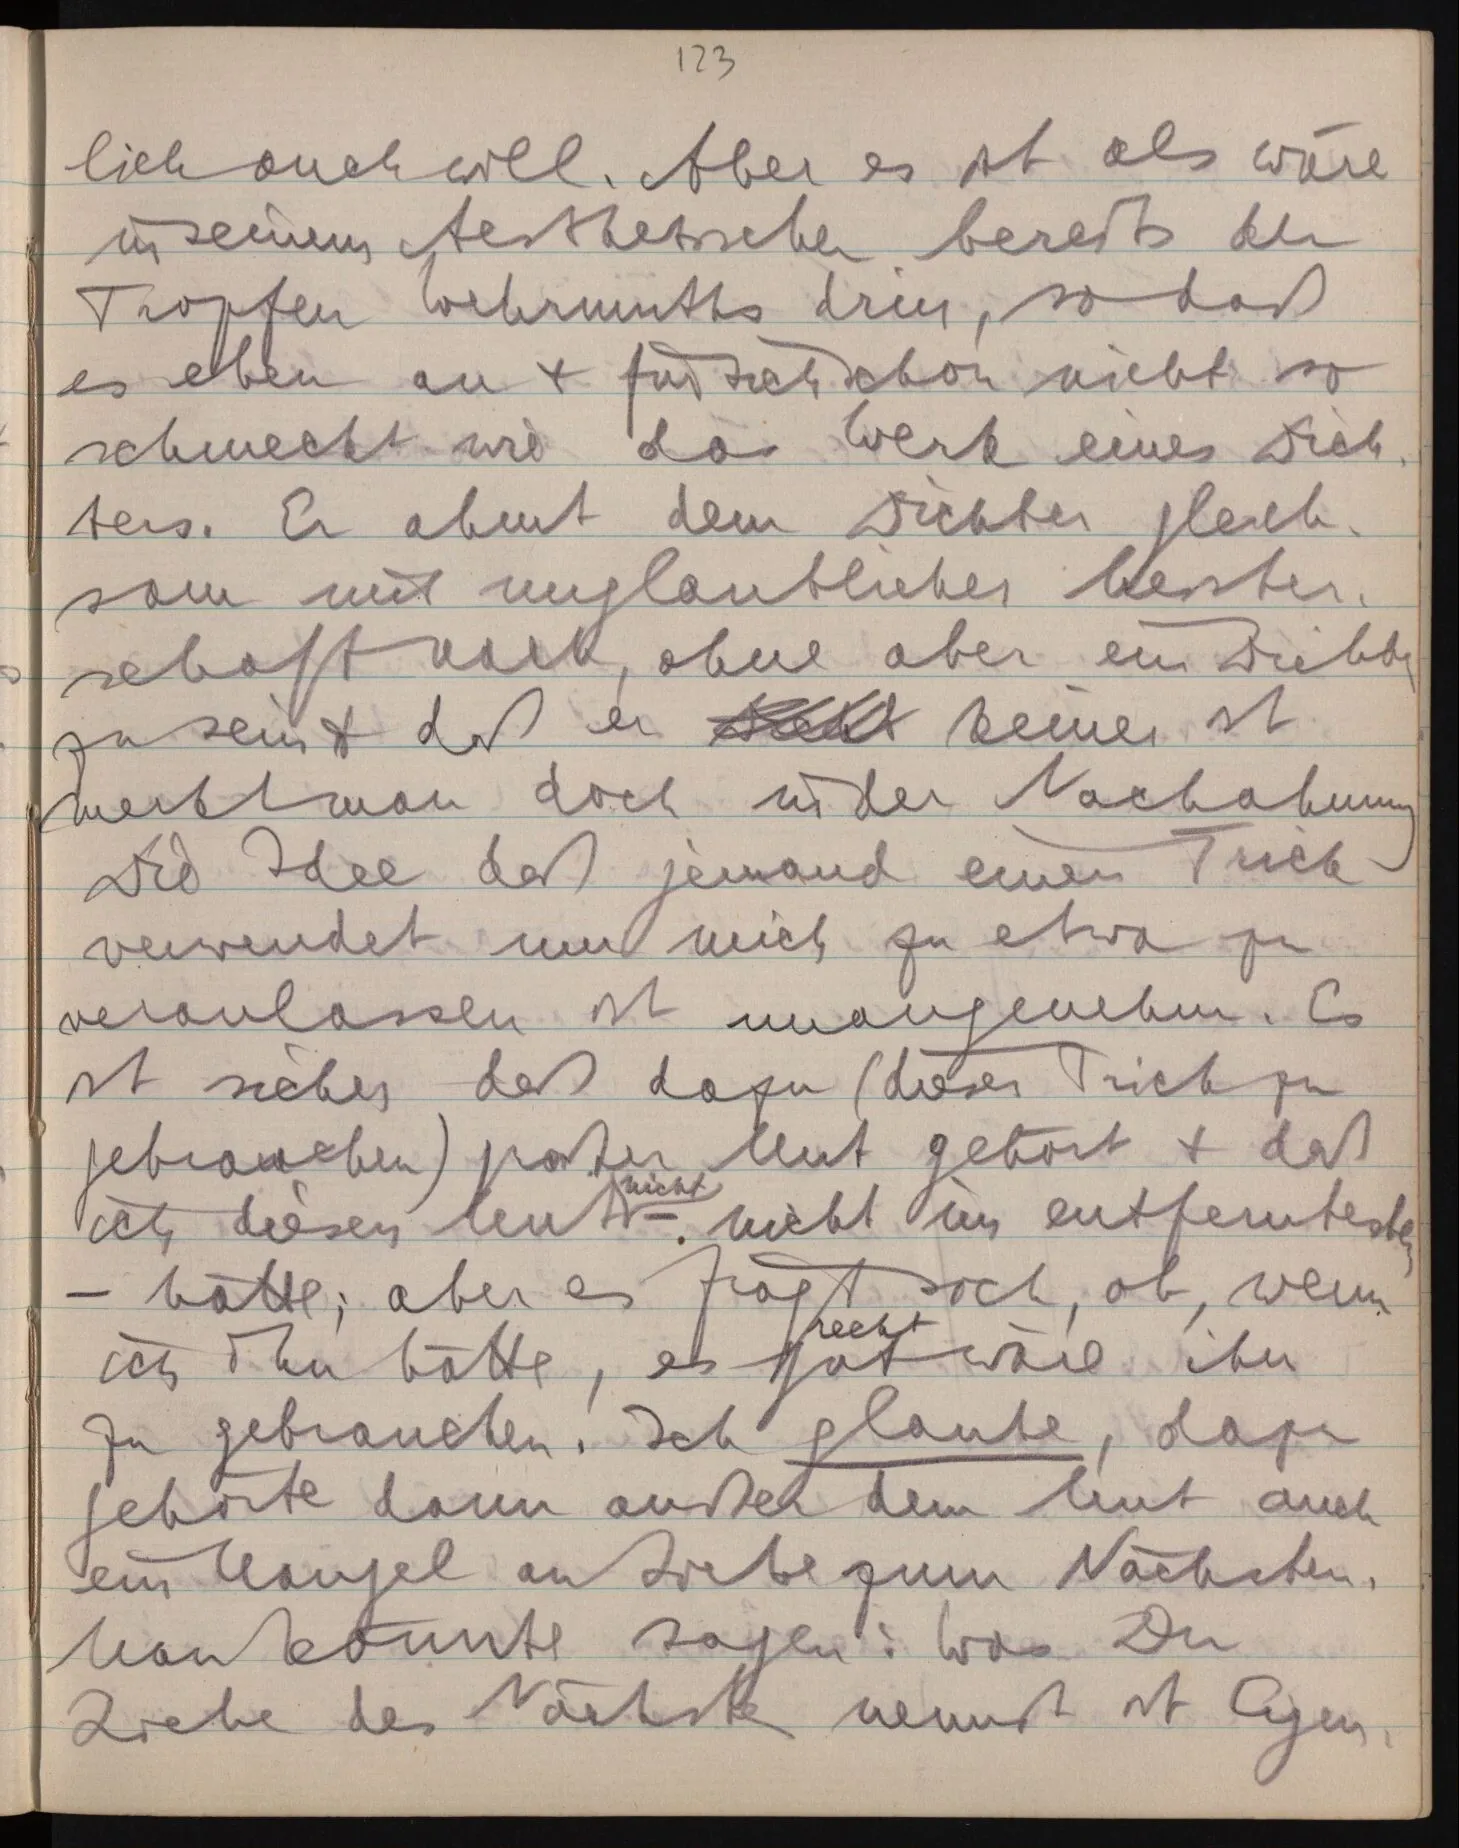 123
lich auch will. Aber es ist als wäre
in seinem Aesthetischen bereits der
Tropfen Wehrmuths drin, so daß
es eben an & für sich schon nicht so
schmeckt wie das Werk eines Dich-
ters. Er ahmt dem Dichter gleich-
sam mit unglaublicher Meister-
schaft nach, ohne aber ein Dichter
zu sein & daß er keiner ist
merkt man doch in der Nachahmung
Die Idee daß jemand einen Trick
verwendet um mich zu etwa zu
veranlassen ist unangenehm. Es
ist sicher daß dazu (diesen Trick zu
gebrauchen) großer Mut gehört & daß
ich diesen Mut nicht – nicht im entferntesten
– hätte; aber es fragt sich, ob, wenn
ich ihn hätte, es gut recht wäre ihn
zu gebrauchen. Ich glaube, dazu
gehörte dann außer dem Mut auch
ein Mangel an Liebe zum Nächsten.
Man könnte sagen: Was Du
Liebe des Nächsten nennst ist Eigen-